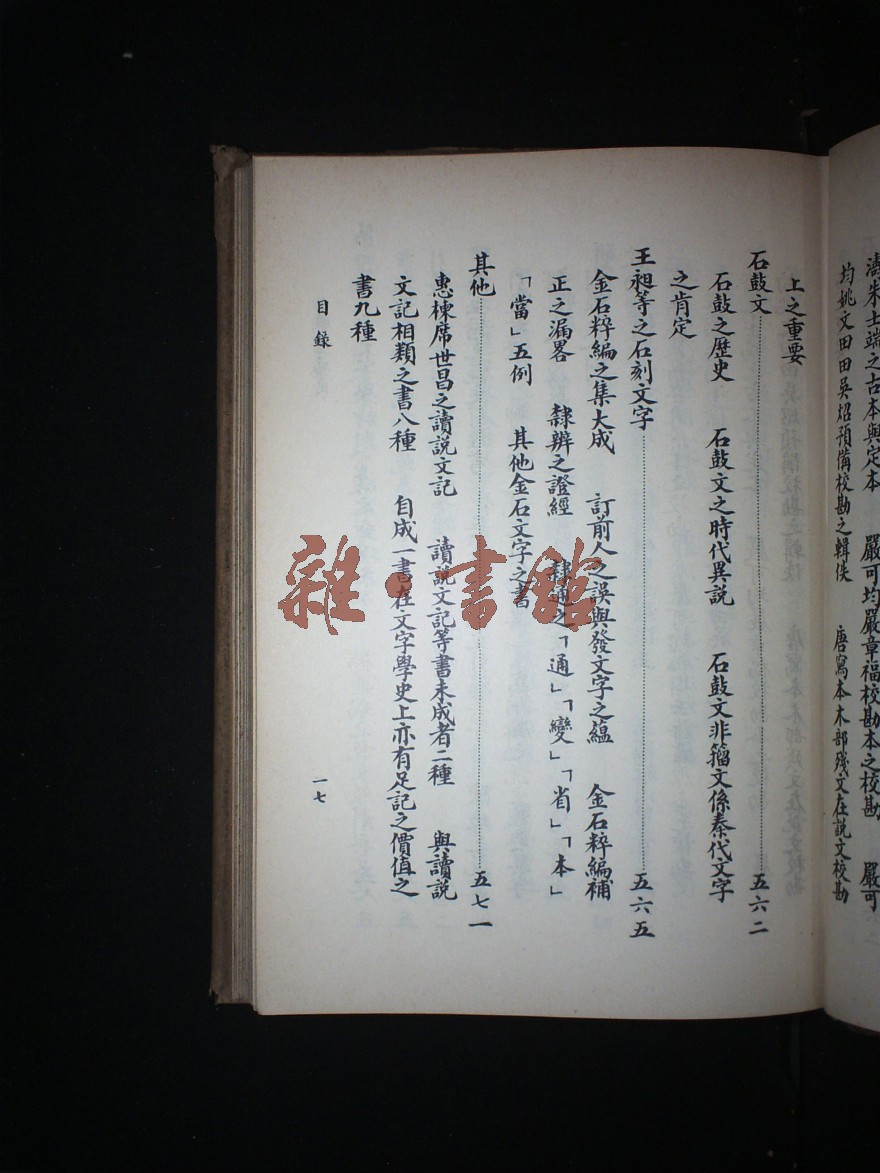 濤朱士端之古本與定本　嚴可均嚴章福校勘本之校勘　嚴可
均姚文田田吳炤預備校勘之輯佚　唐寫本木部殘文在說文校勘
上之重要
石鼓文……五六二
石鼓之歷史　石鼓文之時代異說　石鼓文非籀文係秦代文字
之肯定
王昶等之石刻文字……五六五
金石粹編之集大成　訂前人之誤與發文字之蘊　金石粹編補
正之漏畧　隸辨之證經　隸通之「通」「變」「省」「本」
「當」五例　其他金石文字之書
其他……五七一
惠棟席世昌之讀說文記　讀說文記等書未成者二種　與讀說
文記相類之書八種　自成一書在文字學史上亦有足記之價值之
書九種
目錄
一七
雜·書館